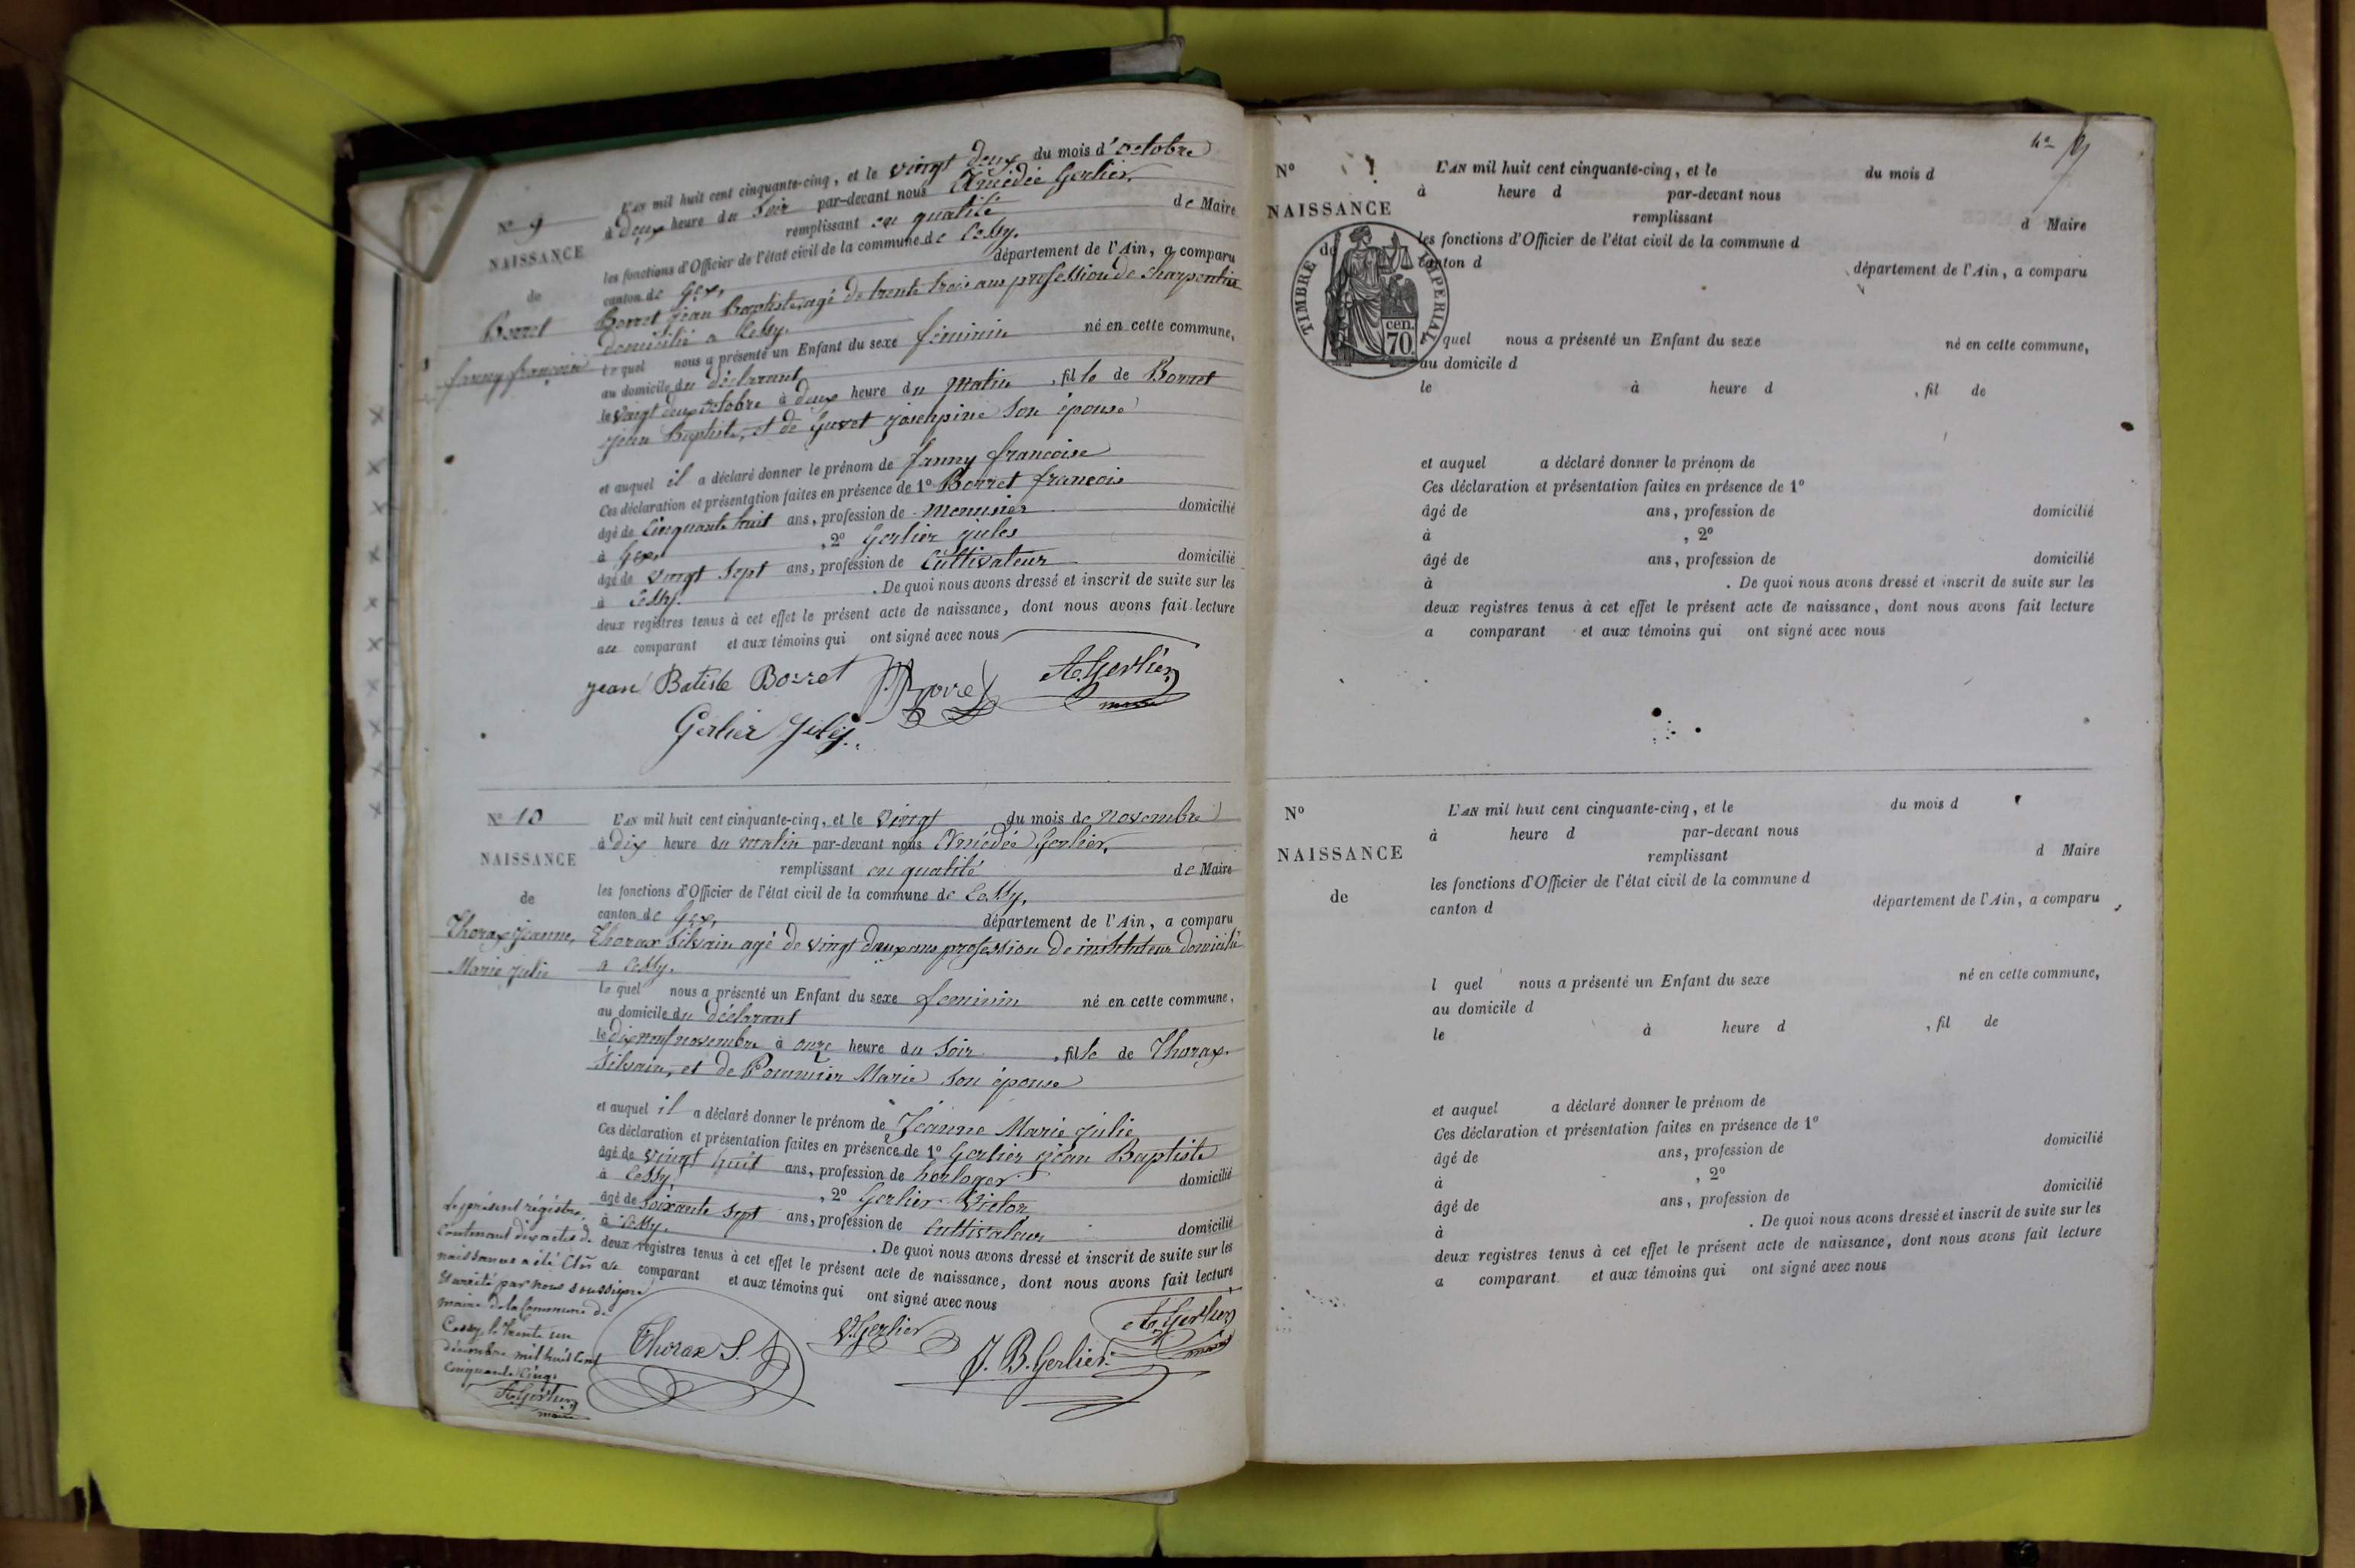 L'AN mil huit cent cinquante-cinq, et le vingt deux du mois d'octobre
N° 9
à Deux heure du soir par-devant nous Amédée Gerlier,
remplissant en qualité de Maire
NAISSANCE
les fonctions d'Officier de l'état civil de la commune de Cessy.
de
canton de Gex, département de l'Ain, a comparu
Borret
Borret jean Baptiste, agé de trente trois ans profession de charpentier
domicilié a Cessy.
fanny françoise
lequel nous a présenté un Enfant du sexe féminin né en cette commune,
au domicile du déclarant
le vingt deux octobre à deux heure du matin, fille de Borret
jean Baptiste, et de josephine son épouse
et auquel il a déclaré donner le prénom de fanny francoise
Ces déclaration et présentation faites en présence de 1° Borret francois
âgé de Cinquante huit ans, profession de menusier domicilié
à Gex, , 2° Gerlier jules
âgé de vingt sept ans, profession de Cultivateur domicilié
à Cessy. . De quoi nous avons dressé et inscrit de suite sur les
deux registres tenus à cet effet le présent acte de naissance, dont nous avons fait lecture
au comparant et aux témoins qui ont signé avec nous
jean Batiste Borret Borret A. Gerlier
maire
Gerlier Jules
N° 10
L'AN mil huit cent cinquante-cinq, et le vingt du mois de novembre
à dix heure du matin par-devant nous Amédée Gerlier,
NAISSANCE
remplissant en qualité de Maire
de
les fonctions d'Officier de l'état civil de la commune de Cessy,
canton de Gex, département de l'Ain, a comparu
Thorax jeanne,
Marie julie
Thorax Silvain agé de vingt deux ans profession de instituteur domicilié
a Cessy.
lequel nous a présenté un Enfant du sexe feminin né en cette commune,
au domicile du déclarant
le dix neuf novembre à onze heure du soir, fille de Thorax
Silvain, et de Pommier Marie son épouse
et auquel il a déclaré donner le prénom de Jeanne Marie julie
Ces déclaration et présentation faites en présence de 1° Gerlier jean Baptiste
âgé de vingt huit ans, profession de horloger domicilié
à Cessy, , 2° Gerlier Victor
âgé de soixante sept ans, profession de Cultivateur domicilié
à Cessy. . De quoi nous avons dressé et inscrit de suite sur les
deux registres tenus à cet effet le présent acte de naissance, dont nous avons fait lecture
au comparant et aux témoins qui ont signé avec nous
Thorax S. V. Gerlier J. B. Gerlier A. Gerlier
maire
Le présent régistre,
Contenant dix actes de
naissance a été Clos
et arrêté par nous soussigné
maire de la Commune de
Cessy, le trente un
décembre mil huit cent
cinquante cinq.
A. Gerlier
maire
N° L'AN mil huit cent cinquante-cinq, et le du mois d
à heure d par-devant nous
NAISSANCE
remplissant d Maire
de
les fonctions d'Officier de l'état civil de la commune d
canton d département de l'Ain, a comparu
TIMBRE IMPERIAL
70 cen.
l quel nous a présenté un Enfant du sexe né en cette commune,
au domicile d
le à heure d , fil de
et auquel a déclaré donner le prénom de
Ces déclaration et présentation faites en présence de 1°
âgé de ans, profession de domicilié
à , 2°
âgé de ans, profession de domicilié
à . De quoi nous avons dressé et inscrit de suite sur les
deux registres tenus à cet effet le présent acte de naissance, dont nous avons fait lecture
a comparant et aux témoins qui ont signé avec nous
N° L'AN mil huit cent cinquante-cinq, et le du mois d
à heure d par-devant nous
NAISSANCE
remplissant d Maire
de
les fonctions d'Officier de l'état civil de la commune d
canton d département de l'Ain, a comparu
l quel nous a présenté un Enfant du sexe né en cette commune,
au domicile d
le à heure d , fil de
et auquel a déclaré donner le prénom de
Ces déclaration et présentation faites en présence de 1°
âgé de ans, profession de domicilié
à , 2°
âgé de ans, profession de domicilié
à . De quoi nous avons dressé et inscrit de suite sur les
deux registres tenus à cet effet le présent acte de naissance, dont nous avons fait lecture
a comparant et aux témoins qui ont signé avec nous